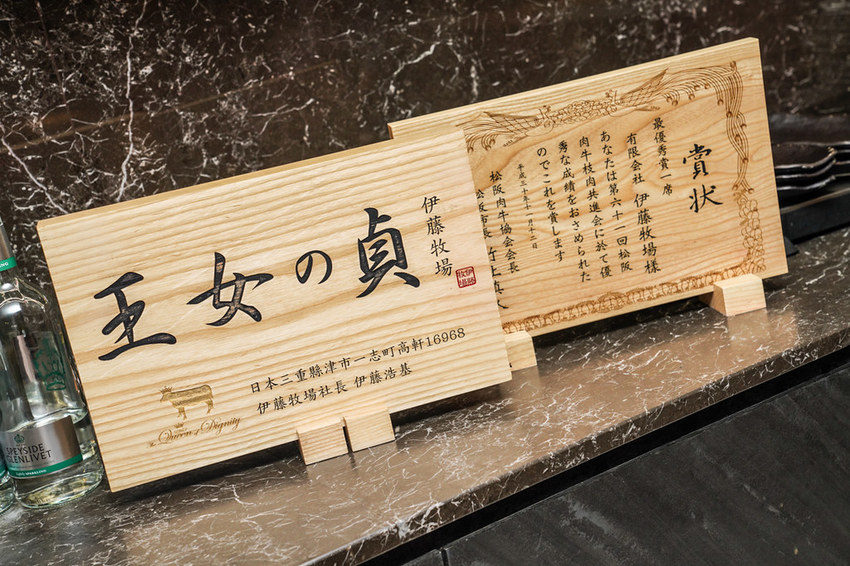 伊藤牧場
王女の貞
日本三重縣津市一志町高軒16968
伊藤牧場社長 伊藤浩基
The Queen of Dignity
賞状
最優秀賞一席
有限会社 伊藤牧場様
あなたは第六十一回松阪
肉牛枝肉共進会に於て優
秀な成績をおさめられた
のでこれを賞します
松阪肉牛協会会長
SPEYSIDE
GLENLIVET